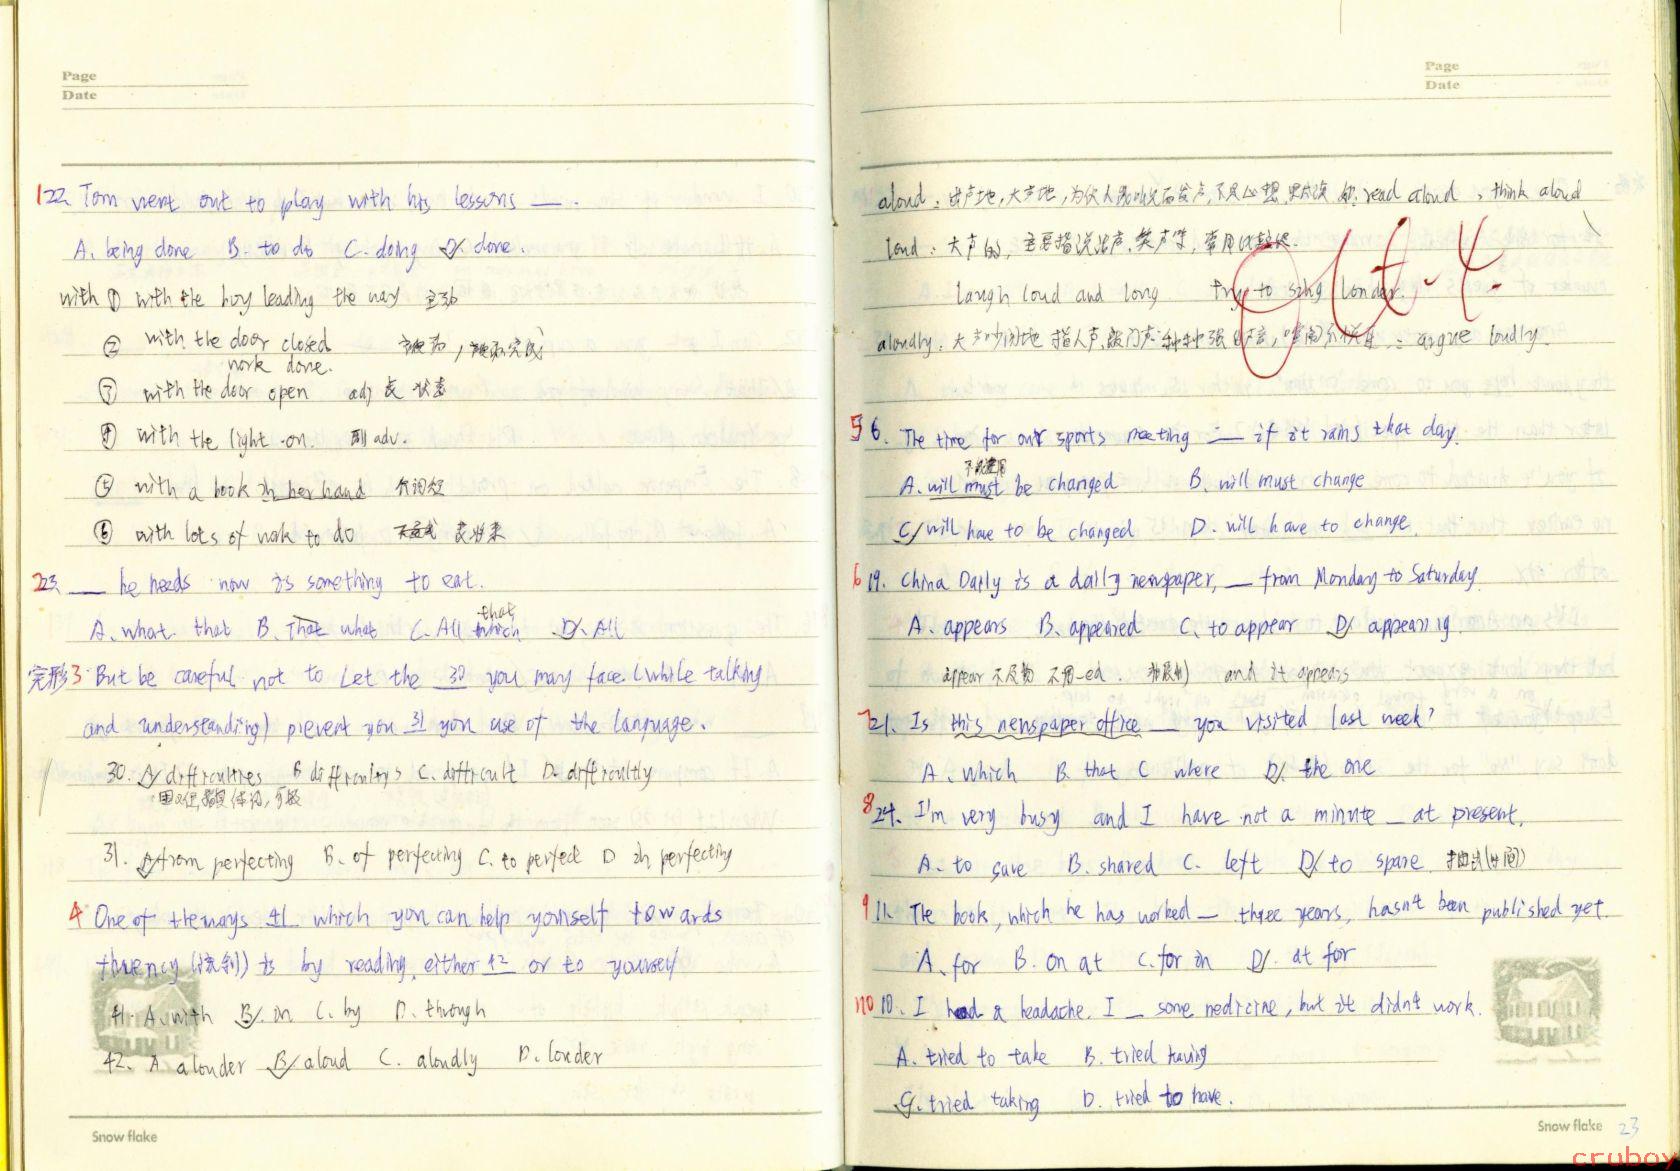 Page
Date
122. Tom went out to play with his lessons ___ .
A. being done B. to do C. doing D. done.
with ① with the boy leading the way 主动
② with the door closed
work done.
③ with the door open adj 表 状态
④ with the light on. 副 adv.
⑤ with a book in her hand 介词短
⑥ with lots of work to do 不定式 表将来
223. ___ he needs now is something to eat.
A. what that B. That what C. All which that D. All
完形3. But be careful not to Let the 30 you may face (while talking
and understanding) prevent you 31 you use of the language.
30. A. difficulties B difficultys C. difficult D. difficultly
31. A. from perfecting B. of perfecting C. to perfect D in perfecting
4 One of the ways 41 which you can help yourself towards
fluency (流利) is by reading, either 42 or to yourself
41. A. with B. in C. by D. through
42. A alouder B. aloud C. aloudly D. louder
Snow flake
Page
Date
aloud: 出声地, 大声地, read aloud, think aloud
loud: 大声的, 主要指说话声、笑声等, 常用比较级.
laugh loud and long try to sing louder.
aloudly: 大声吵闹地 指人声、敲门声 argue loudly.
Oct. 4.
5 6. The time for our sports meeting ___ if it rains that day.
A. will must be changed B. will must change
C. will have to be changed D. will have to change.
6 19. China Daily is a daily newspaper, ___ from Monday to Saturday.
A. appears B. appeared C. to appear D. appearing.
appear 不及物 不用-ed and it appears
7 21. Is this newspaper office ___ you visited last week?
A. which B. that C where D. the one
8 24. I'm very busy and I have not a minute ___ at present.
A. to save B. shared C. left D. to spare. 抽出(时间)
9 11. The book, which he has worked ___ three years, hasn't been published yet.
A. for B. on at C. for in D. at for
110 10. I had a headache. I ___ some medicine, but it didn't work.
A. tried to take B. tried having
C. tried taking D. tried to have.
Snow flake 23
crubox